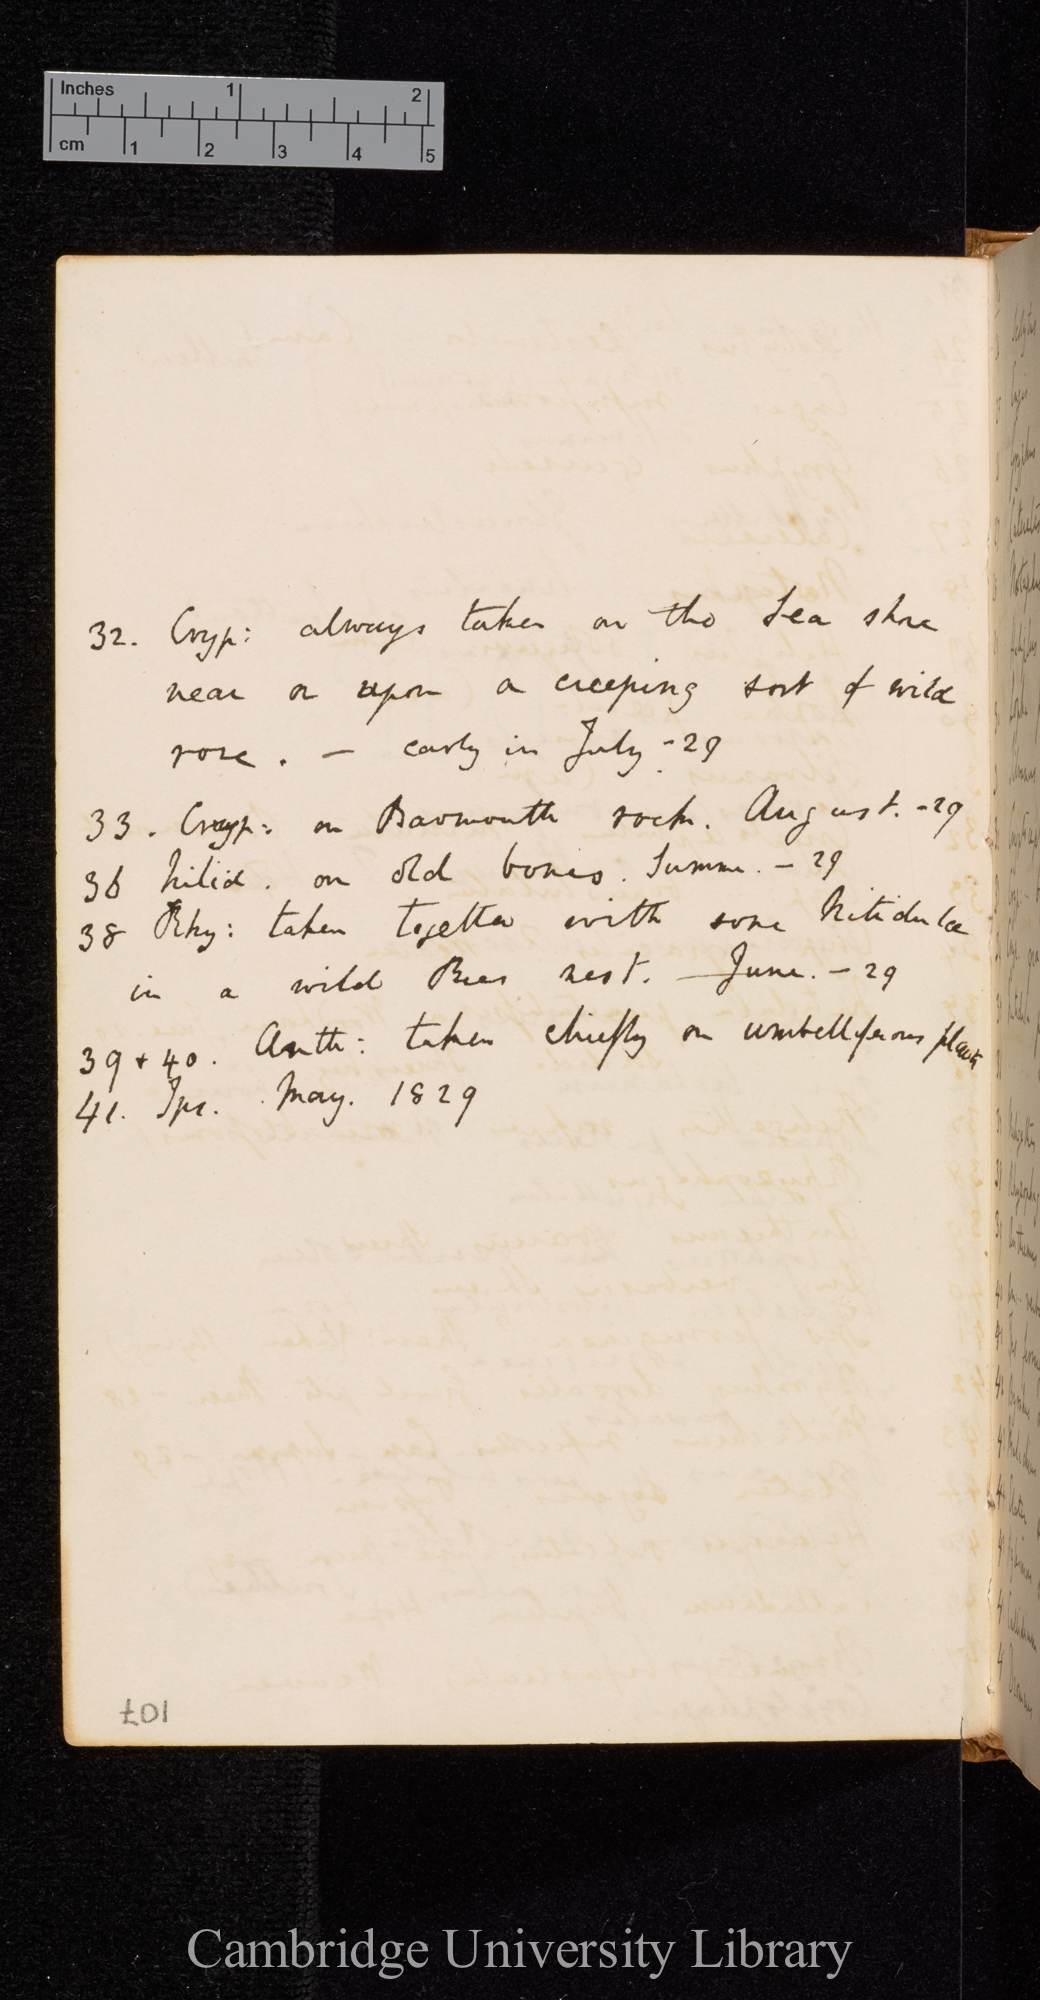 Inches 1 2
cm 1 2 3 4 5
32. Cryp: always taken on the sea shore
near or upon a creeping sort of wild
rose. — early in July -29
33. Cryp: on Barmouth rock. August. -29
36 Nitid. on old bones. Summer. - 29
38 Rhy: taken together with some Nitidulae
in a wild Bees nest. — June. - 29
39 + 40. Anth: taken chiefly on umbelliferous plants
41. Ips. May. 1829
107
Cambridge University Library